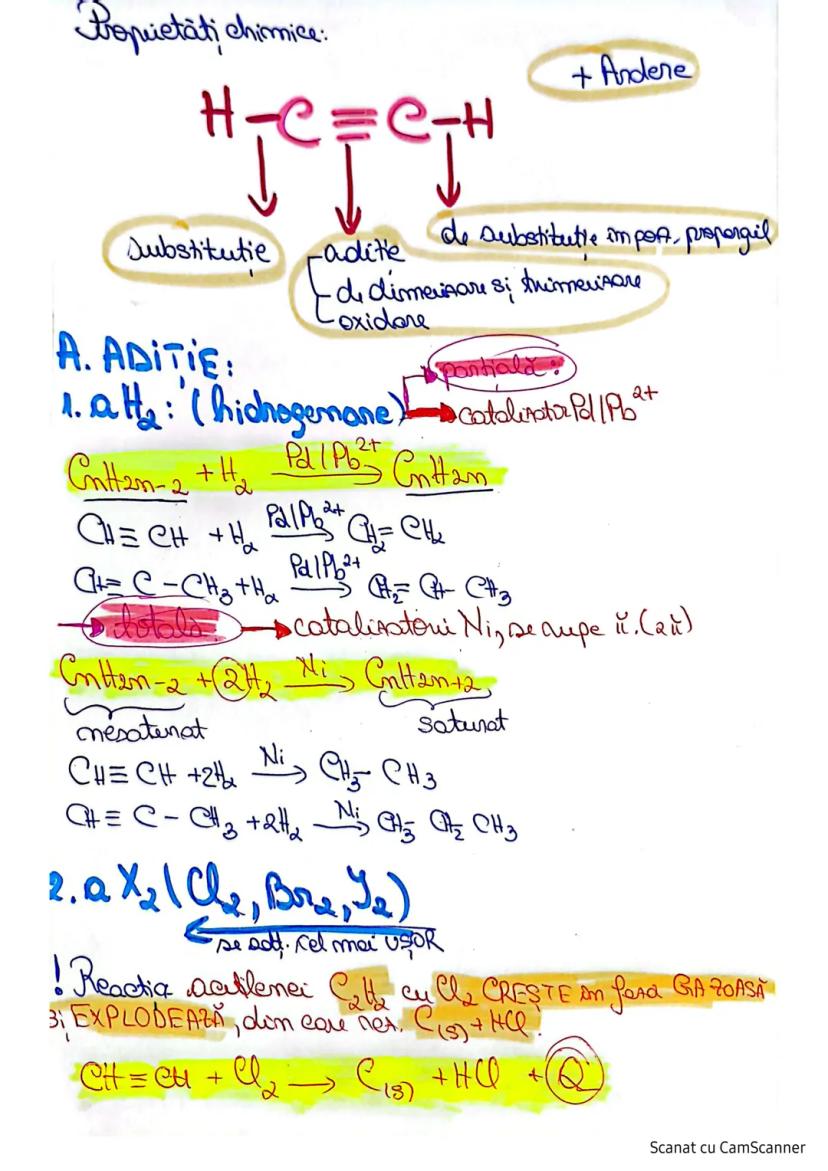 Proprietăți chimice:
+ Ardere
H-C≡C-H
substituție
-adiție
-de dimerizare și trimerizare
-oxidare
de substituție în poz. propargil
A. ADIȚIE:
1. a H₂: (hidrogenare)
parțială:
catalizator Pd/Pb²⁺
CnH2n-2 + H₂ Pd/Pb²⁺→ CnH2n
CH≡CH + H₂ Pd/Pb²⁺→ CH₂=CH₂
CH≡C-CH₃ + H₂ Pd/Pb²⁺→ CH₂=CH-CH₃
totală: → catalizatori Ni, se rupe π. (2π)
CnH2n-2 + 2H₂ Ni→ CnH2n+2
nesaturat saturat
CH≡CH +2H₂ Ni→ CH₃-CH₃
CH≡C-CH₃ +2H₂ Ni→ CH₃-CH₂-CH₃
2. a X₂ (Cl₂, Br₂, I₂)
se adț. cel mai UȘOR
! Reacția acetilenei C₂H₂ cu Cl₂ CREȘTE în faza GAZOASĂ
și EXPLODEAZĂ, din care rez. C(s) + HCl.
CH≡CH + Cl₂ → C(s) + HCl + Q
Scanat cu CamScanner